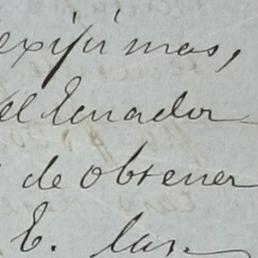 exijir mas,
el Ecuador
de obtener
E. las